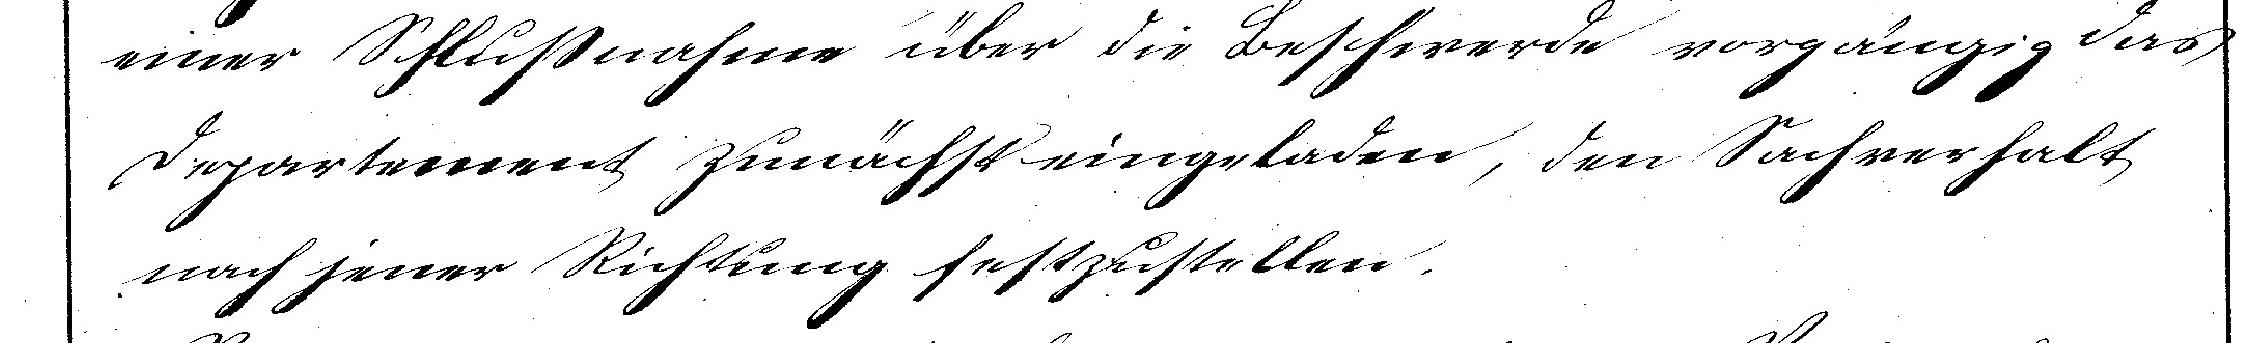 einer Schlußnahme über die Beschwerde vorgängig das
Departement zunächst eingeladen, den Sachverhalt
nach jener Richtung festzustellen.